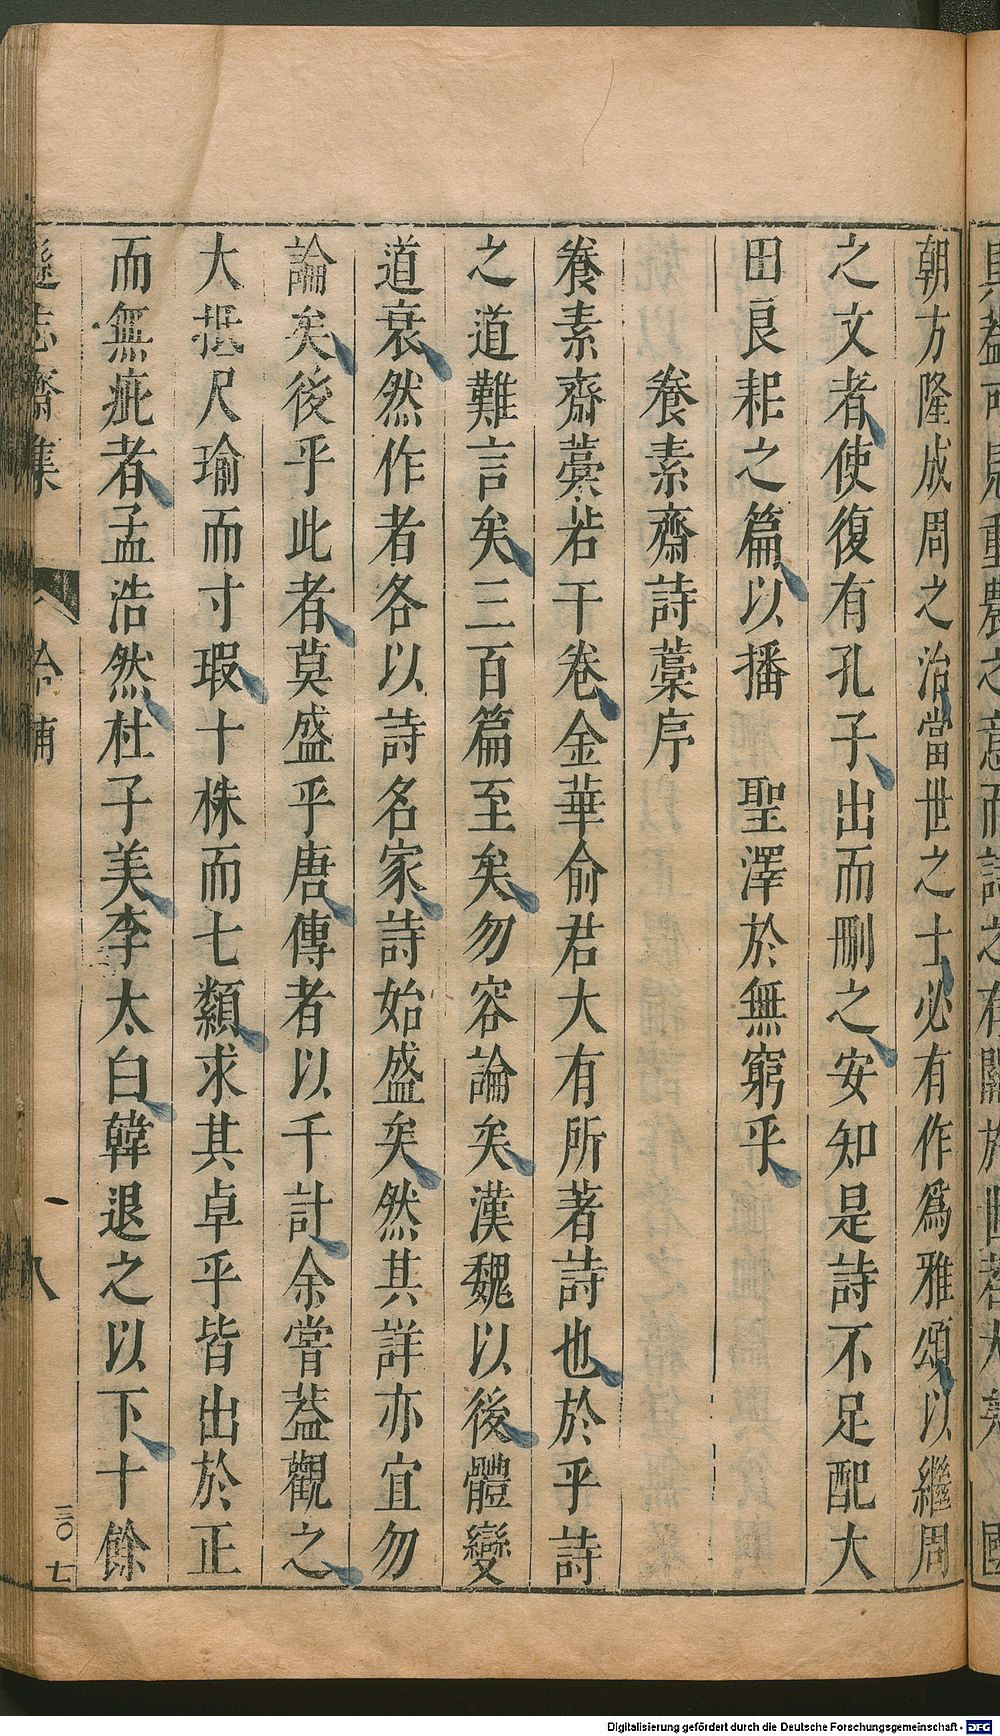 朝方隆成周之治當世之士必有作爲雅頌以繼周
之文者使復有孔子出而刪之安知是詩不足配大
田良耜之篇以播　聖澤於無窮乎
養素齋詩藁序
養素齋藁若干卷金華俞君大有所著詩也於乎詩
之道難言矣三百篇至矣勿容論矣漢魏以後體變
道衰然作者各以詩名家詩始盛矣然其詳亦宜勿
論矣後乎此者莫盛乎唐傳者以千計余嘗葢觀之
大抵尺瑜而寸瑕十株而七纇求其卓乎皆出於正
而無疵者孟浩然杜子美李太白韓退之以下十餘
遜志齋集
八
三〇七
Digitalisierung gefördert durch die Deutsche Forschungsgemeinschaft - DFG